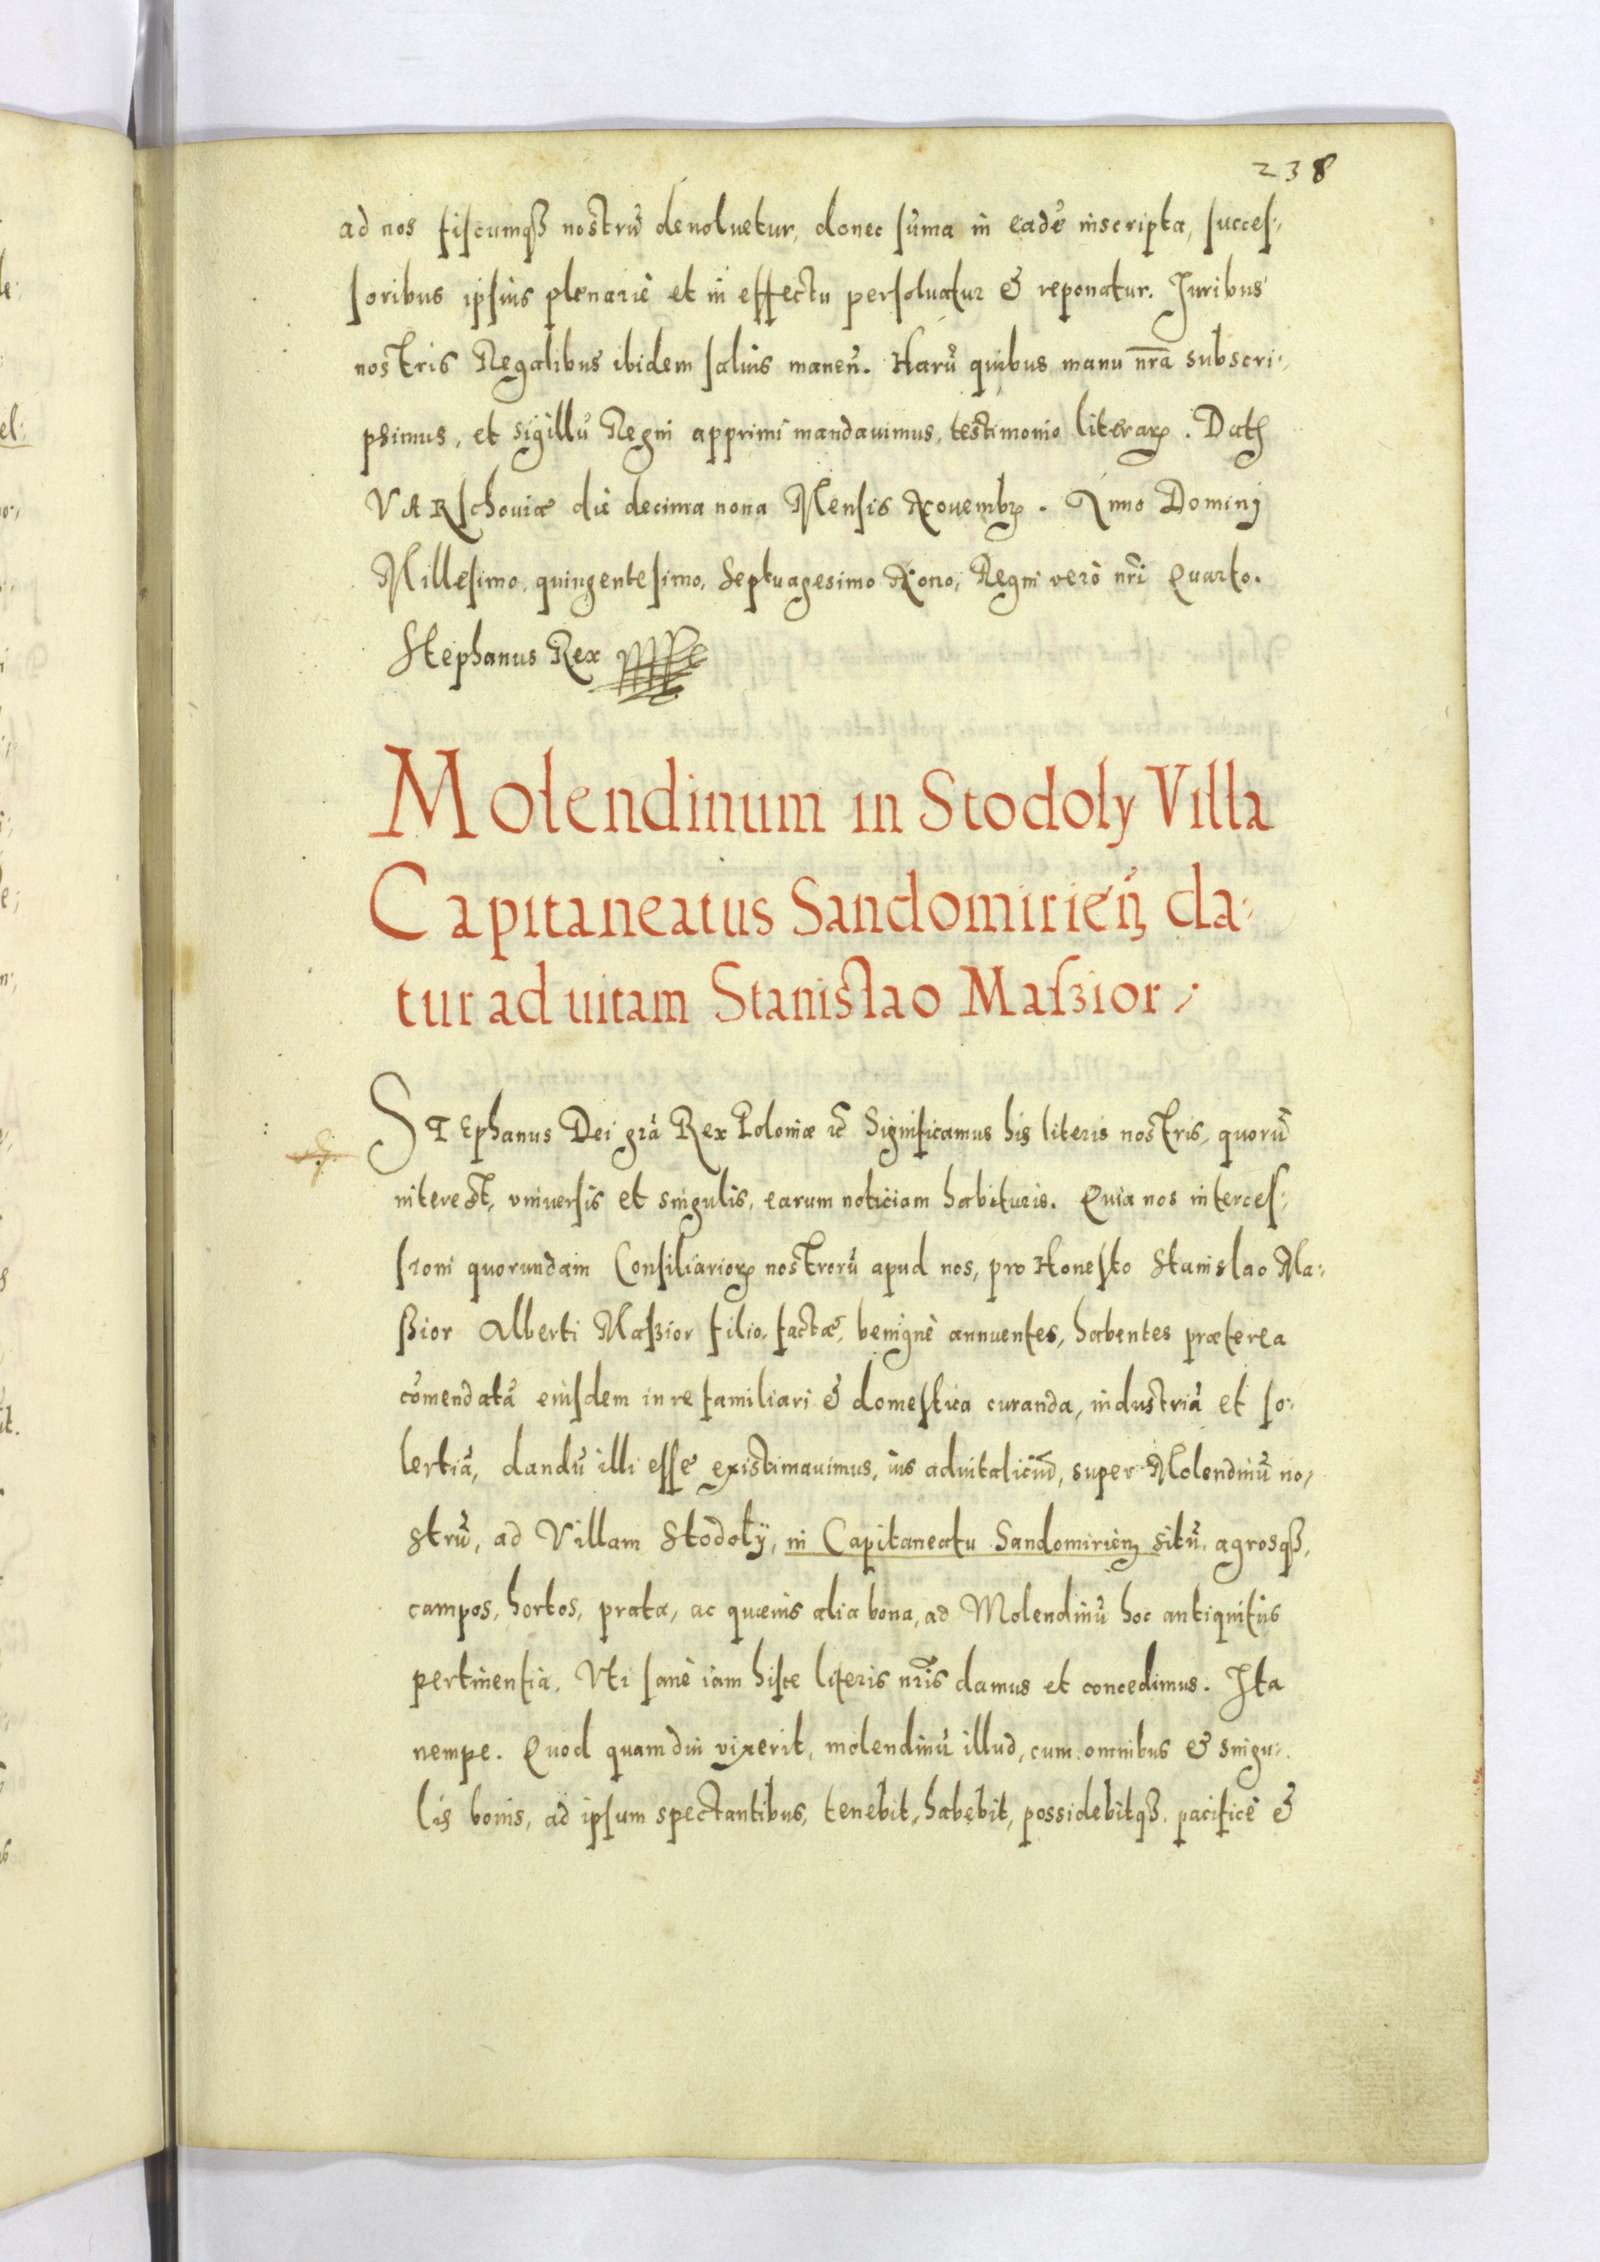 238
ad nos fiscumqꝫ nostrũ devoluetur, donec sũma in eadẽ inscripta, succes-
soribus ipsius plenariè et in effectu persoluatur & reponatur. Juribus
nostris Regalibus ibidem saluis manen̄. Harũ quibus manu nr̃a subscri-
psimus, et sigillũ Regni apprimi mandauimus, testimonio literarꝝ. Datꝭ
VARschouiæ die decima nona Mensis Nouembrꝭ. Anno Dominj
Millesimo, quingentesimo, Septuagesimo Nono, Regni verò nr̃i Quarto.
Stephanus Rex
Molendinum in Stodoly Villa
Capitaneatus Sandomirien̄ da-
tur ad uitam Stanislao Maszior
STEphanus Dei gr̃a Rex Poloniæ ꝛc̃ Significamus his literis nostris, quorũ
interest, vniuersis et singulis, earum noticiam habituris. Quia nos interces-
sioni quorundam Consiliariorꝝ nostrorũ apud nos, pro Honesto Stanislao Ma-
szior Alberti Maszior filio, factæ, benignè annuentes, habentes præterea
cõmendatã eiusdem in re familiari & domestica curanda, industriã et so-
lertiã, dandũ illi esse existimauimus, ius aduitaliciũ, super Molendinũ no-
strũ, ad Villam Stodoly, in Capitaneatu Sandomirien̄ sitũ, agrosqꝫ,
campos, hortos, prata, ac quæuis alia bona, ad Molendinũ hoc antiquitùs
pertinentia, Vti sanè iam hisce literis nr̃is damus et concedimus. Ita
nempe. Quod quamdiu vixerit, molendinũ illud, cum omnibus & singu-
lis bonis, ad ipsum spectantibus, tenebit, habebit, possidebitqꝫ, pacificè &